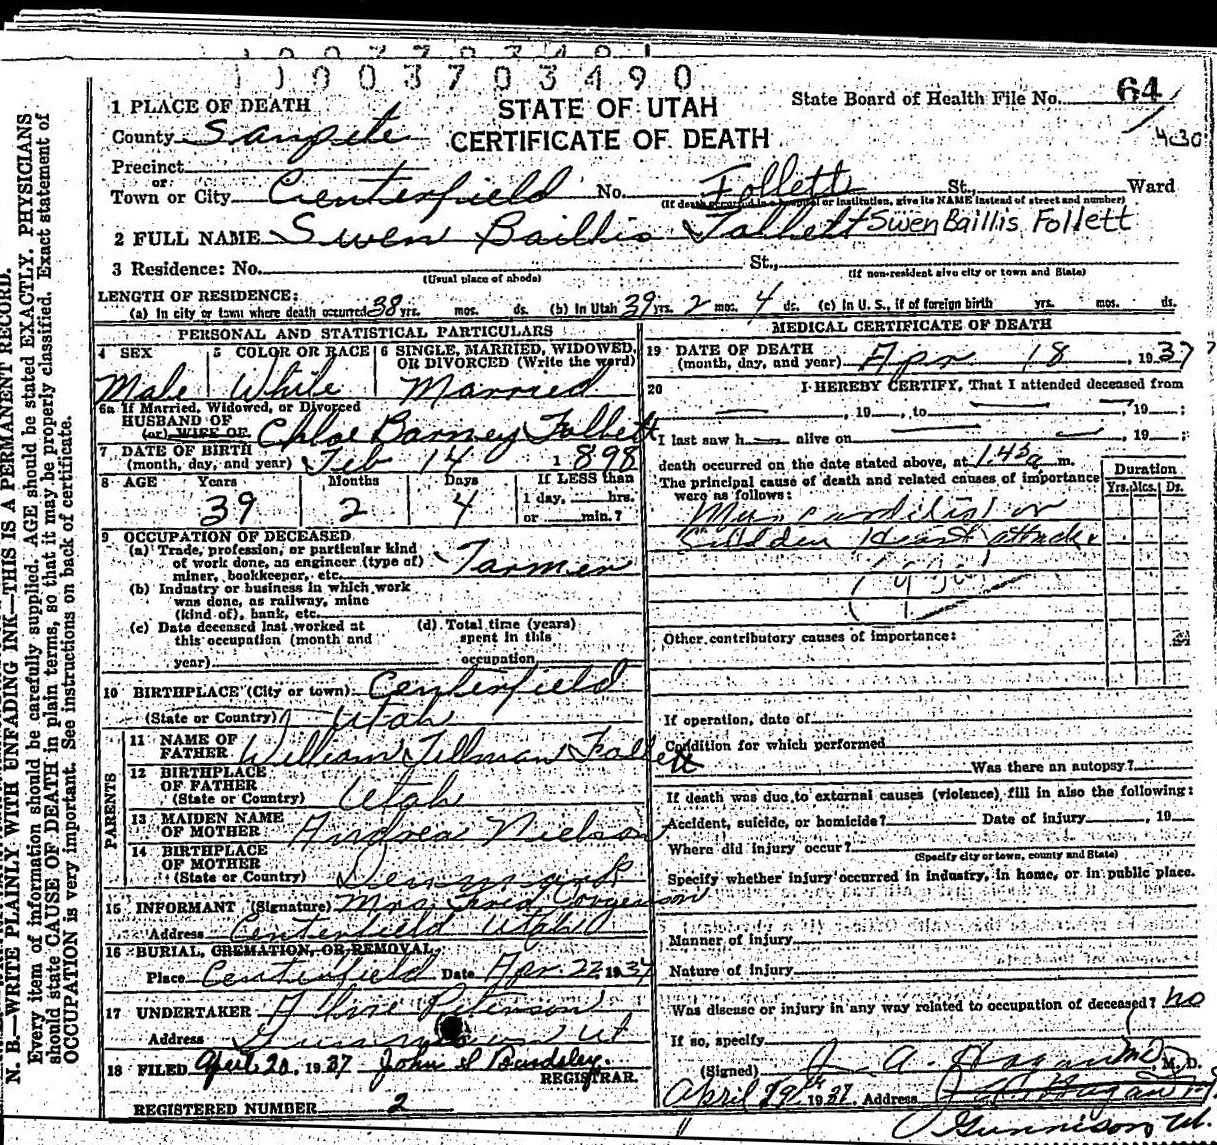 1 0 0 3 7 0 3 4 9 0
1 PLACE OF DEATH
STATE OF UTAH
CERTIFICATE OF DEATH
State Board of Health File No. 64
430
County Sanpete
Precinct
or
Town or City Centerfield No. Follett St., Ward
(If death occurred in a hospital or institution, give its NAME instead of street and number)
2 FULL NAME Swen Baillis Follett Swen Baillis Follett
3 Residence: No. St.,
(Usual place of abode) (If non-resident give city or town and State)
LENGTH OF RESIDENCE:
(a) In city or town where death occurred 38 yrs. mos. ds. (b) In Utah 39 yrs. 2 mos. 4 ds. (c) In U. S., if of foreign birth yrs. mos. ds.
PERSONAL AND STATISTICAL PARTICULARS
4 SEX 5 COLOR OR RACE 6 SINGLE, MARRIED, WIDOWED, OR DIVORCED (Write the word)
Male White Married
6a If Married, Widowed, or Divorced
HUSBAND OF
(or) WIFE OF Chloe Barney Follett
7 DATE OF BIRTH
(month, day, and year) Feb 14 1898
8 AGE Years Months Days If LESS than
1 day, hrs.
or min.?
39 2 4
9 OCCUPATION OF DECEASED
(a) Trade, profession, or particular kind
of work done, as engineer (type of)
miner, bookkeeper, etc. Farmer
(b) Industry or business in which work
was done, as railway, mine
(kind of), bank, etc.
(c) Date deceased last worked at
this occupation (month and
year)
(d) Total time (years)
spent in this
occupation
10 BIRTHPLACE (City or town) Centerfield
(State or Country) Utah
PARENTS
11 NAME OF
FATHER William Tillman Follett
12 BIRTHPLACE
OF FATHER
(State or Country) Utah
13 MAIDEN NAME
OF MOTHER Andrea Nielson
14 BIRTHPLACE
OF MOTHER
(State or Country) Denmark
15 INFORMANT (Signature) Mrs.
Address Centerfield Utah
16 BURIAL, CREMATION, OR REMOVAL
Place Centerfield Date Apr 22 1937
17 UNDERTAKER
Address Gunnison Ut
18 FILED April 20, 1937 John S Bardsley.
REGISTRAR.
REGISTERED NUMBER 2
MEDICAL CERTIFICATE OF DEATH
19 DATE OF DEATH
(month, day, and year) Apr 18, 1937
20 I HEREBY CERTIFY, That I attended deceased from
, 19 , to , 19 ;
I last saw h alive on , 19 ;
death occurred on the date stated above, at 1.45a m.
The principal cause of death and related causes of importance
were as follows:
Duration
Yrs. Mos. Ds.
Myocarditis or
Sudden Heart attack
Other contributory causes of importance:
If operation, date of
Condition for which performed
Was there an autopsy?
If death was due to external causes (violence), fill in also the following:
Accident, suicide, or homicide? Date of injury , 19
Where did injury occur?
(Specify city or town, county and State)
Specify whether injury occurred in industry, in home, or in public place.
Manner of injury
Nature of injury
Was disease or injury in any way related to occupation of deceased? no
If so, specify
(Signed) J. A. Hagan MD, M. D.
April 19th 1937 Address
Gunnison Ut.
N. B.—WRITE PLAINLY WITH UNFADING INK—THIS IS A PERMANENT RECORD.
Every item of information should be carefully supplied. AGE should be stated EXACTLY. PHYSICIANS
should state CAUSE OF DEATH in plain terms, so that it may be properly classified. Exact statement of
OCCUPATION is very important. See instructions on back of certificate.